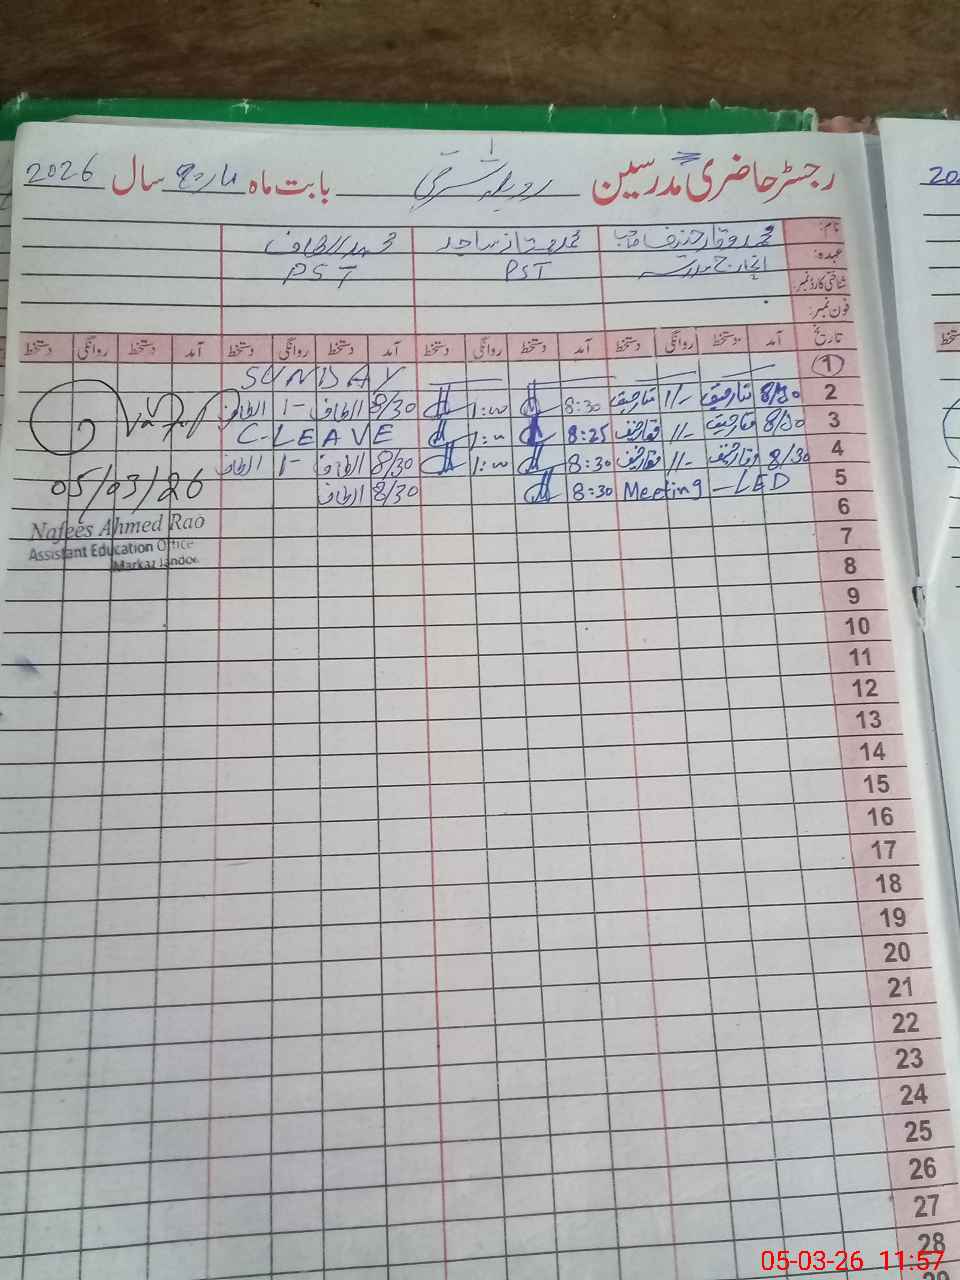 رجسٹر حاضری مدرسین بابت ماہ مارچ سال 2026
نام: محمد وقار حنیف صاحب محمد ممتاز ساجد محمد الطاف
عہدہ: انچارج مدرسہ PST PST
شناختی کارڈ نمبر:
فون نمبر:
تاریخ آمد دستخط روانگی دستخط آمد دستخط روانگی دستخط آمد دستخط روانگی دستخط آمد دستخط روانگی دستخط
1 SUNDAY
2 8/30 1/- 8:30 1:00 8/30 الطاف 1- الطاف
3 8/30 1/- 8:25 1:00 C-LEAVE
4 8/30 1/- 8:30 1:00 8/30 الطاف 1- الطاف
5 Meeting - LED 8:30 8/30 الطاف
05/03/26
Nafees Ahmed Rao
Assistant Education Office
Markaz
6
7
8
9
10
11
12
13
14
15
16
17
18
19
20
21
22
23
24
25
26
27
28
29
05-03-26 11:57